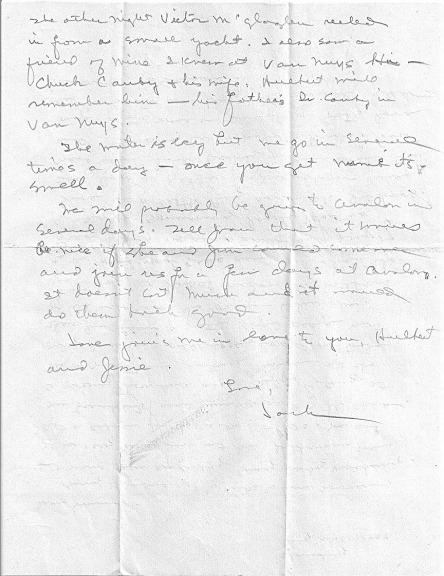 The other night Victor McGlaglen reeled
in from a small yacht. I also saw a
friend of mine I knew at Van Nuys Hi —
Chuck Canby & his wife. Hulbert will
remember him — his father's Dr. Canby in
Van Nuys.
The water is icy but we go in several
times a day — once you get numb it's
swell.
We will probably be going to Avalon in
several days. Tell Jean that it would
be nice if she and Jim
and join us for a few days at Avalon.
It doesn't cost much and it would
do them both good.
Jane joins me in love to you, Hulbert
and Jessie.
Love,
Jack